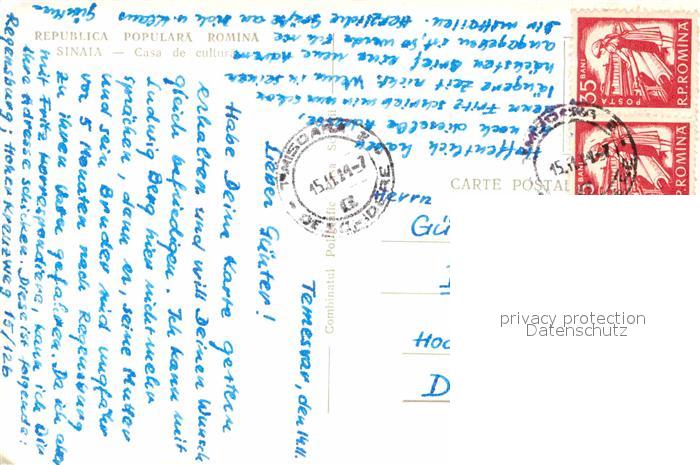 REPUBLICA POPULARĂ ROMÎNĂ
SINAIA — Casa de cultură
CARTE POSTALĂ
Combinatul Poligrafic Casa Scînteii
55 BANI
POSTA
R.P. ROMINA
55 BANI
POSTA
R.P. ROMINA
TIMISOARA
15.11.64-7
G
TIMISOARA
Temesvar, den 14.11.
Lieber Günter!
Habe Deine Karte gestern
erhalten und will Deinen Wunsch
gleich befriedigen. Ich kann mit
Ludwig Berg hier nicht mehr
sprechen, denn er, seine Mutter
und sein Bruder sind ungefähr
vor 5 Monaten nach Regensburg
zu ihrem Vater gefahren. Da ich aber
mit Fritz korrespondiere, kann ich Dir
ihre Adresse schicken. Diese ist folgende:
Regensburg; Hoher Kreuzweg 15/
Hoffentlich haben
noch dieselbe Adresse,
denn Fritz schrieb mir nun schon
längere Zeit nicht. Wenn in seinem
nächsten Brief eine neue
angegeben ist, so werde ich sie
Dir mitteilen. Herzliche Grüße an Dich u. Klaus
Günther
Herrn
Gü
Hoc
D
privacy protection
Datenschutz